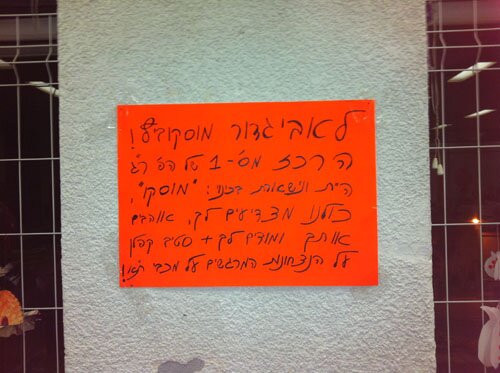 לאביגדור מוסקוביץ!
הרכז מס'-1 של הפ' ר"ג
היית ונשארת בכנוי: "מוסקו",
כולנו מצדיעים לך, אוהבים
אותך ומודים לך + סטיב קפלן
על הנצחונות המרגשים על מכבי ת"א!